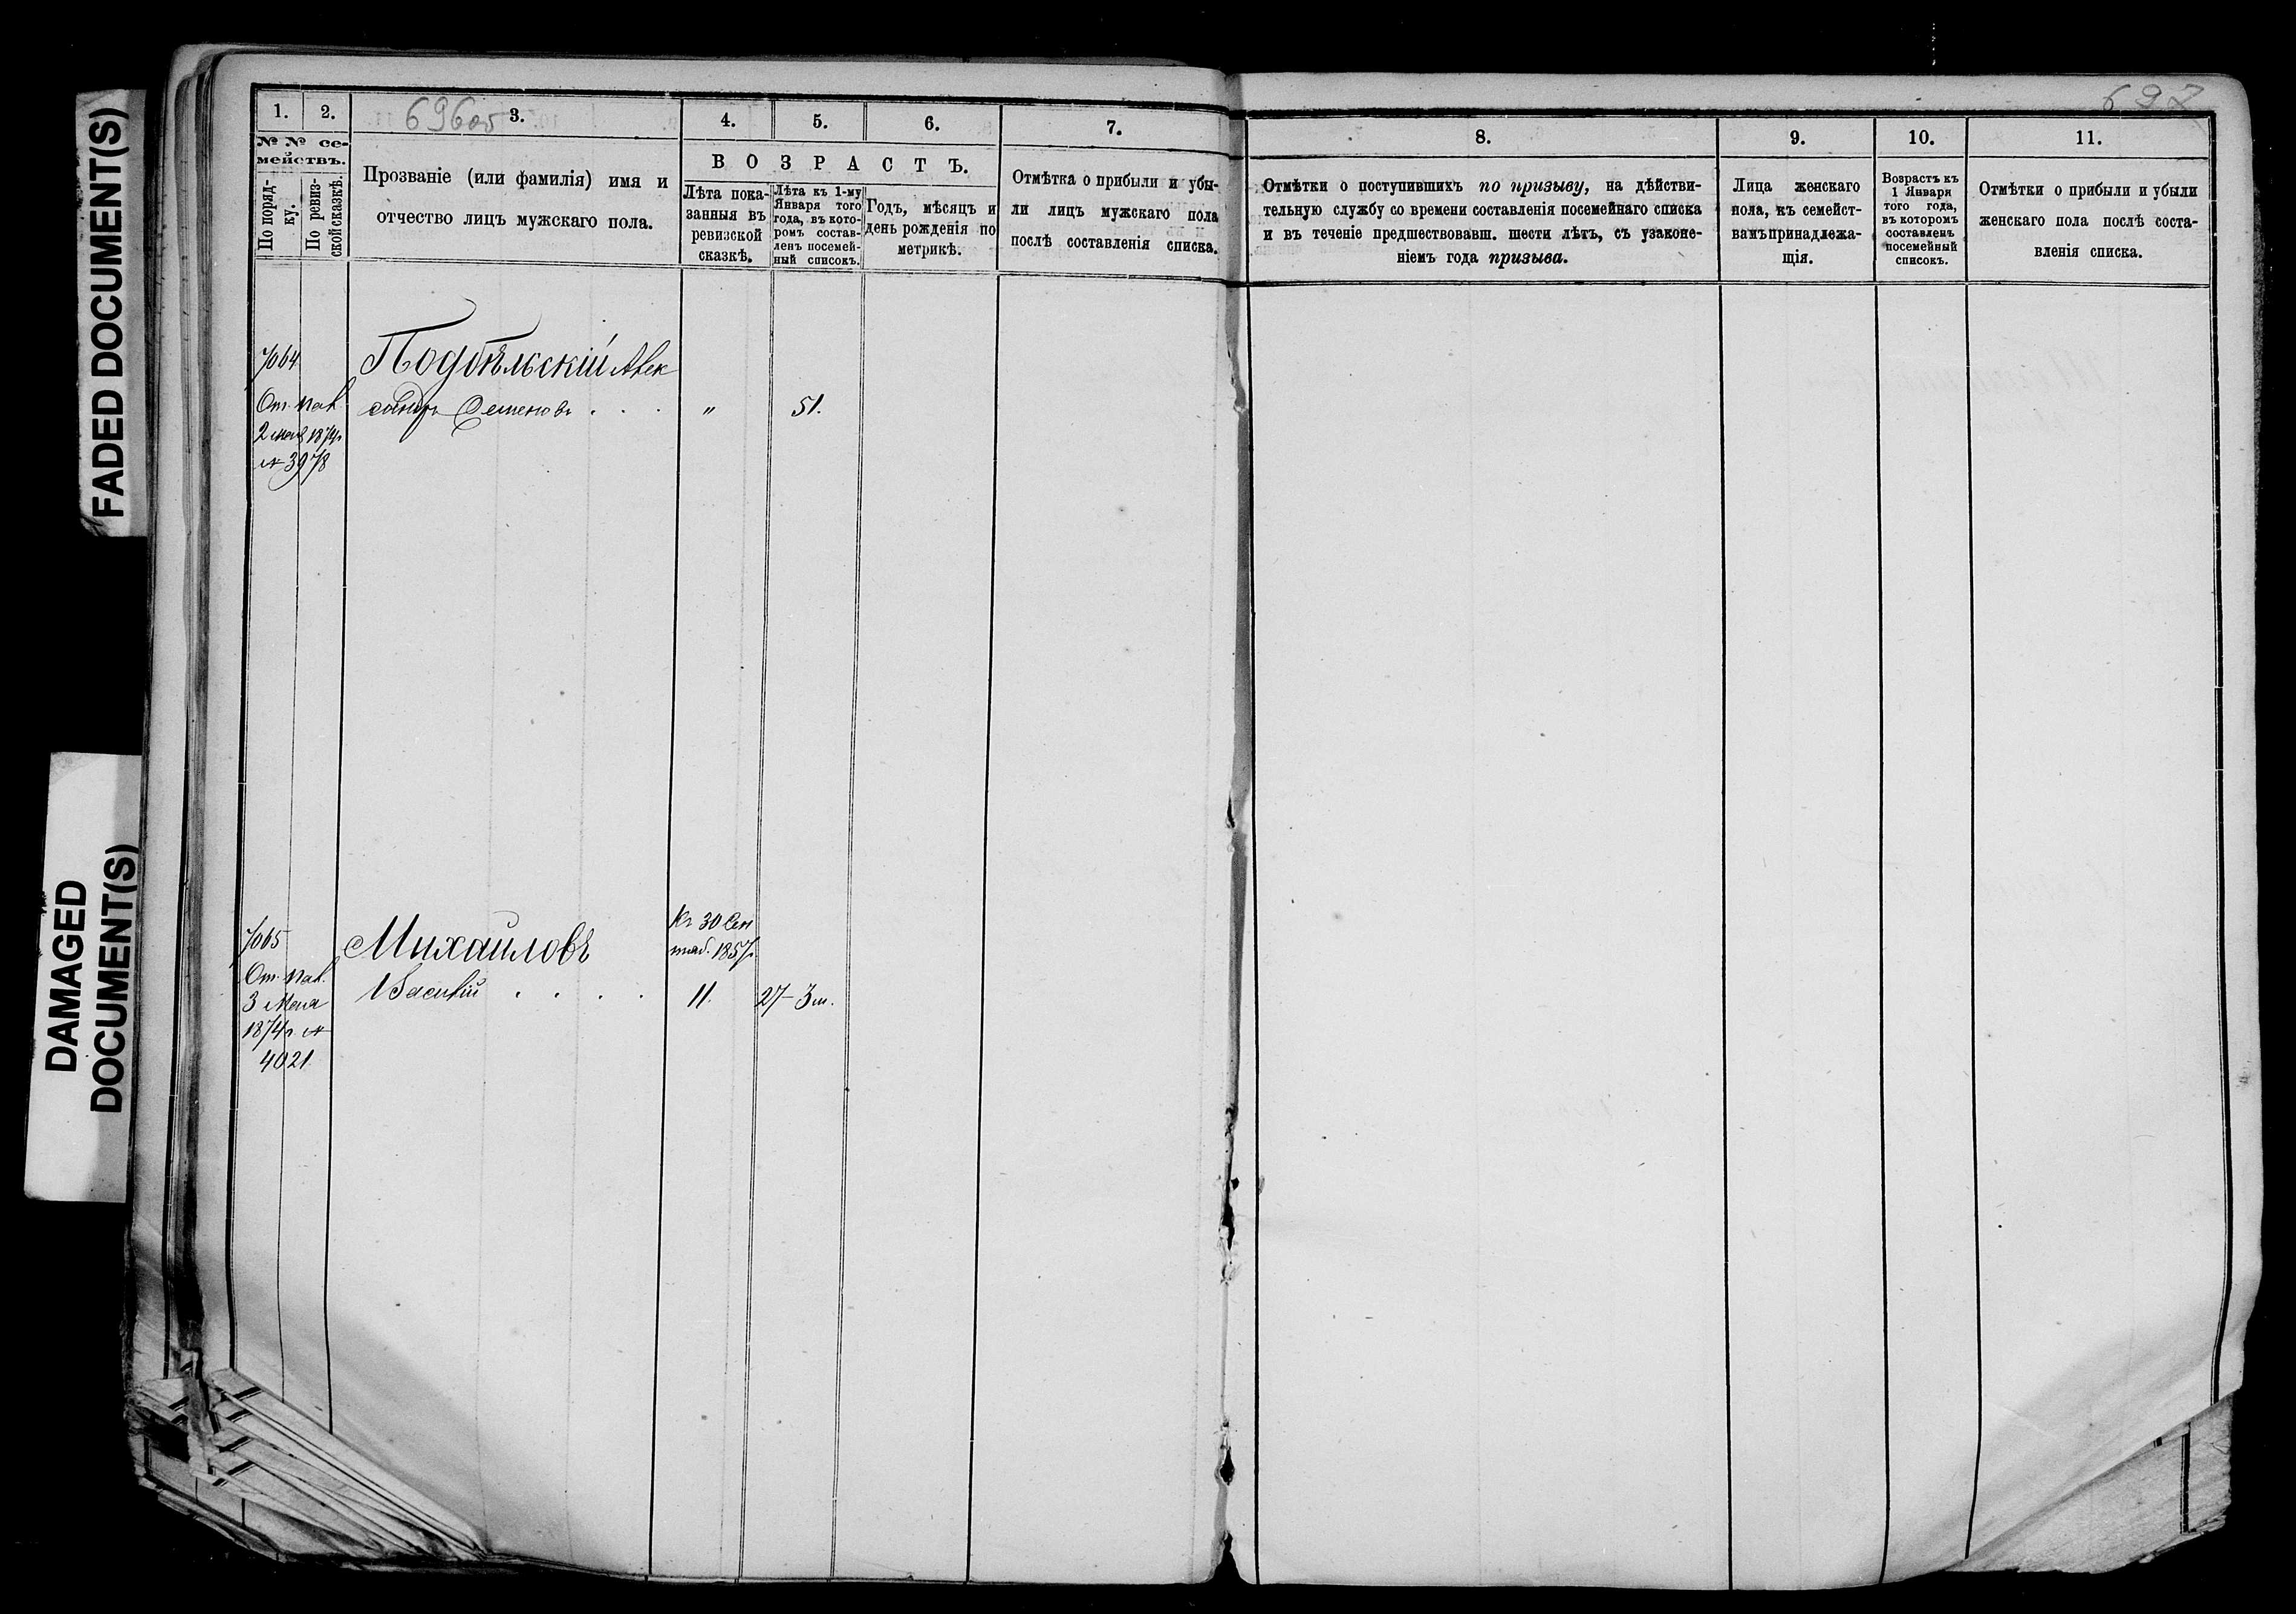 FADED DOCUMENT(S)
DAMAGED
DOCUMENT(S)
696об
697
1.
2.
3.
4.
5.
6.
7.
№ № се-
мействъ.
По поряд-
ку.
По ревиз-
ской сказкѣ.
Прозваніе (или фамилія) имя и
отчество лицъ мужскаго пола.
ВОЗРАСТЪ.
Лѣта пока-
занныя въ
ревизской
сказкѣ.
Лѣта къ 1-му
Января того
года, въ кото-
ромъ состав-
ленъ посемей-
ный списокъ.
Годъ, мѣсяцъ и
день рожденія по
метрикѣ.
Отмѣтка о прибыли и убы-
ли лицъ мужскаго пола
послѣ составленія списка.
8.
9.
10.
11.
Отмѣтки о поступившихъ по призыву, на дѣйстви-
тельную службу со времени составленія посемейнаго списка
и въ теченіе предшествовавш. шести лѣтъ, съ узаконе-
ніемъ года призыва.
Лица женскаго
пола, къ семейст-
вамъ принадлежа-
щія.
Возрастъ къ
1 Января
того года,
въ которомъ
составленъ
посемейный
списокъ.
Отмѣтки о прибыли и убыли
женскаго пола послѣ соста-
вленія списка.
7064
Подбѣльскій Алек
сандръ Семеновъ . . . " 51.
От. пал.
2 мая 1874г
№ 3978
7065
Михайловъ
Къ 30 Сен
тяб. 1857г.
Василій . . . . 11. 27-3м.
От. пал.
3 Мая
1874г. №
4021.